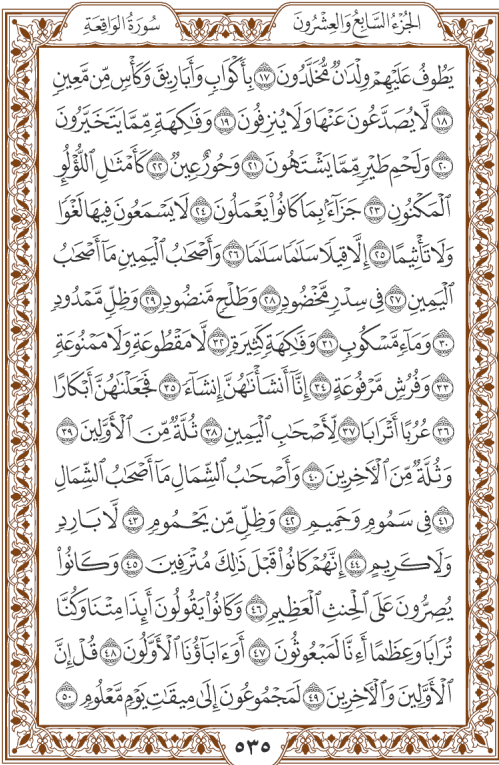 الجُزْءُ السَّابِعُ وَالعِشْرُونَ سُورَةُ الوَاقِعَةِ
يَطُوفُ عَلَيْهِمْ وِلْدَٰنٌ مُّخَلَّدُونَ ١٧ بِأَكْوَابٍ وَأَبَارِيقَ وَكَأْسٍ مِّن مَّعِينٍ
١٨ لَّا يُصَدَّعُونَ عَنْهَا وَلَا يُنزِفُونَ ١٩ وَفَٰكِهَةٍ مِّمَّا يَتَخَيَّرُونَ
٢٠ وَلَحْمِ طَيْرٍ مِّمَّا يَشْتَهُونَ ٢١ وَحُورٌ عِينٌ ٢٢ كَأَمْثَٰلِ اللُّؤْلُوِٕ
الْمَكْنُونِ ٢٣ جَزَآءًۢ بِمَا كَانُوا۟ يَعْمَلُونَ ٢٤ لَا يَسْمَعُونَ فِيهَا لَغْوًا
وَلَا تَأْثِيمًا ٢٥ إِلَّا قِيلًا سَلَٰمًا سَلَٰمًا ٢٦ وَأَصْحَٰبُ الْيَمِينِ مَآ أَصْحَٰبُ
الْيَمِينِ ٢٧ فِى سِدْرٍ مَّخْضُودٍ ٢٨ وَطَلْحٍ مَّنضُودٍ ٢٩ وَظِلٍّ مَّمْدُودٍ
٣٠ وَمَآءٍ مَّسْكُوبٍ ٣١ وَفَٰكِهَةٍ كَثِيرَةٍ ٣٢ لَّا مَقْطُوعَةٍ وَلَا مَمْنُوعَةٍ
٣٣ وَفُرُشٍ مَّرْفُوعَةٍ ٣٤ إِنَّآ أَنشَأْنَٰهُنَّ إِنشَآءً ٣٥ فَجَعَلْنَٰهُنَّ أَبْكَارًا
٣٦ عُرُبًا أَتْرَابًا ٣٧ لِّأَصْحَٰبِ الْيَمِينِ ٣٨ ثُلَّةٌ مِّنَ الْأَوَّلِينَ ٣٩
وَثُلَّةٌ مِّنَ الْءَاخِرِينَ ٤٠ وَأَصْحَٰبُ الشِّمَالِ مَآ أَصْحَٰبُ الشِّمَالِ
٤١ فِى سَمُومٍ وَحَمِيمٍ ٤٢ وَظِلٍّ مِّن يَحْمُومٍ ٤٣ لَّا بَارِدٍ
وَلَا كَرِيمٍ ٤٤ إِنَّهُمْ كَانُوا۟ قَبْلَ ذَٰلِكَ مُتْرَفِينَ ٤٥ وَكَانُوا۟
يُصِرُّونَ عَلَى الْحِنثِ الْعَظِيمِ ٤٦ وَكَانُوا۟ يَقُولُونَ أَئِذَا مِتْنَا وَكُنَّا
تُرَابًا وَعِظَٰمًا أَءِنَّا لَمَبْعُوثُونَ ٤٧ أَوَءَابَآؤُنَا الْأَوَّلُونَ ٤٨ قُلْ إِنَّ
الْأَوَّلِينَ وَالْءَاخِرِينَ ٤٩ لَمَجْمُوعُونَ إِلَىٰ مِيقَٰتِ يَوْمٍ مَّعْلُومٍ ٥٠
٥٣٥